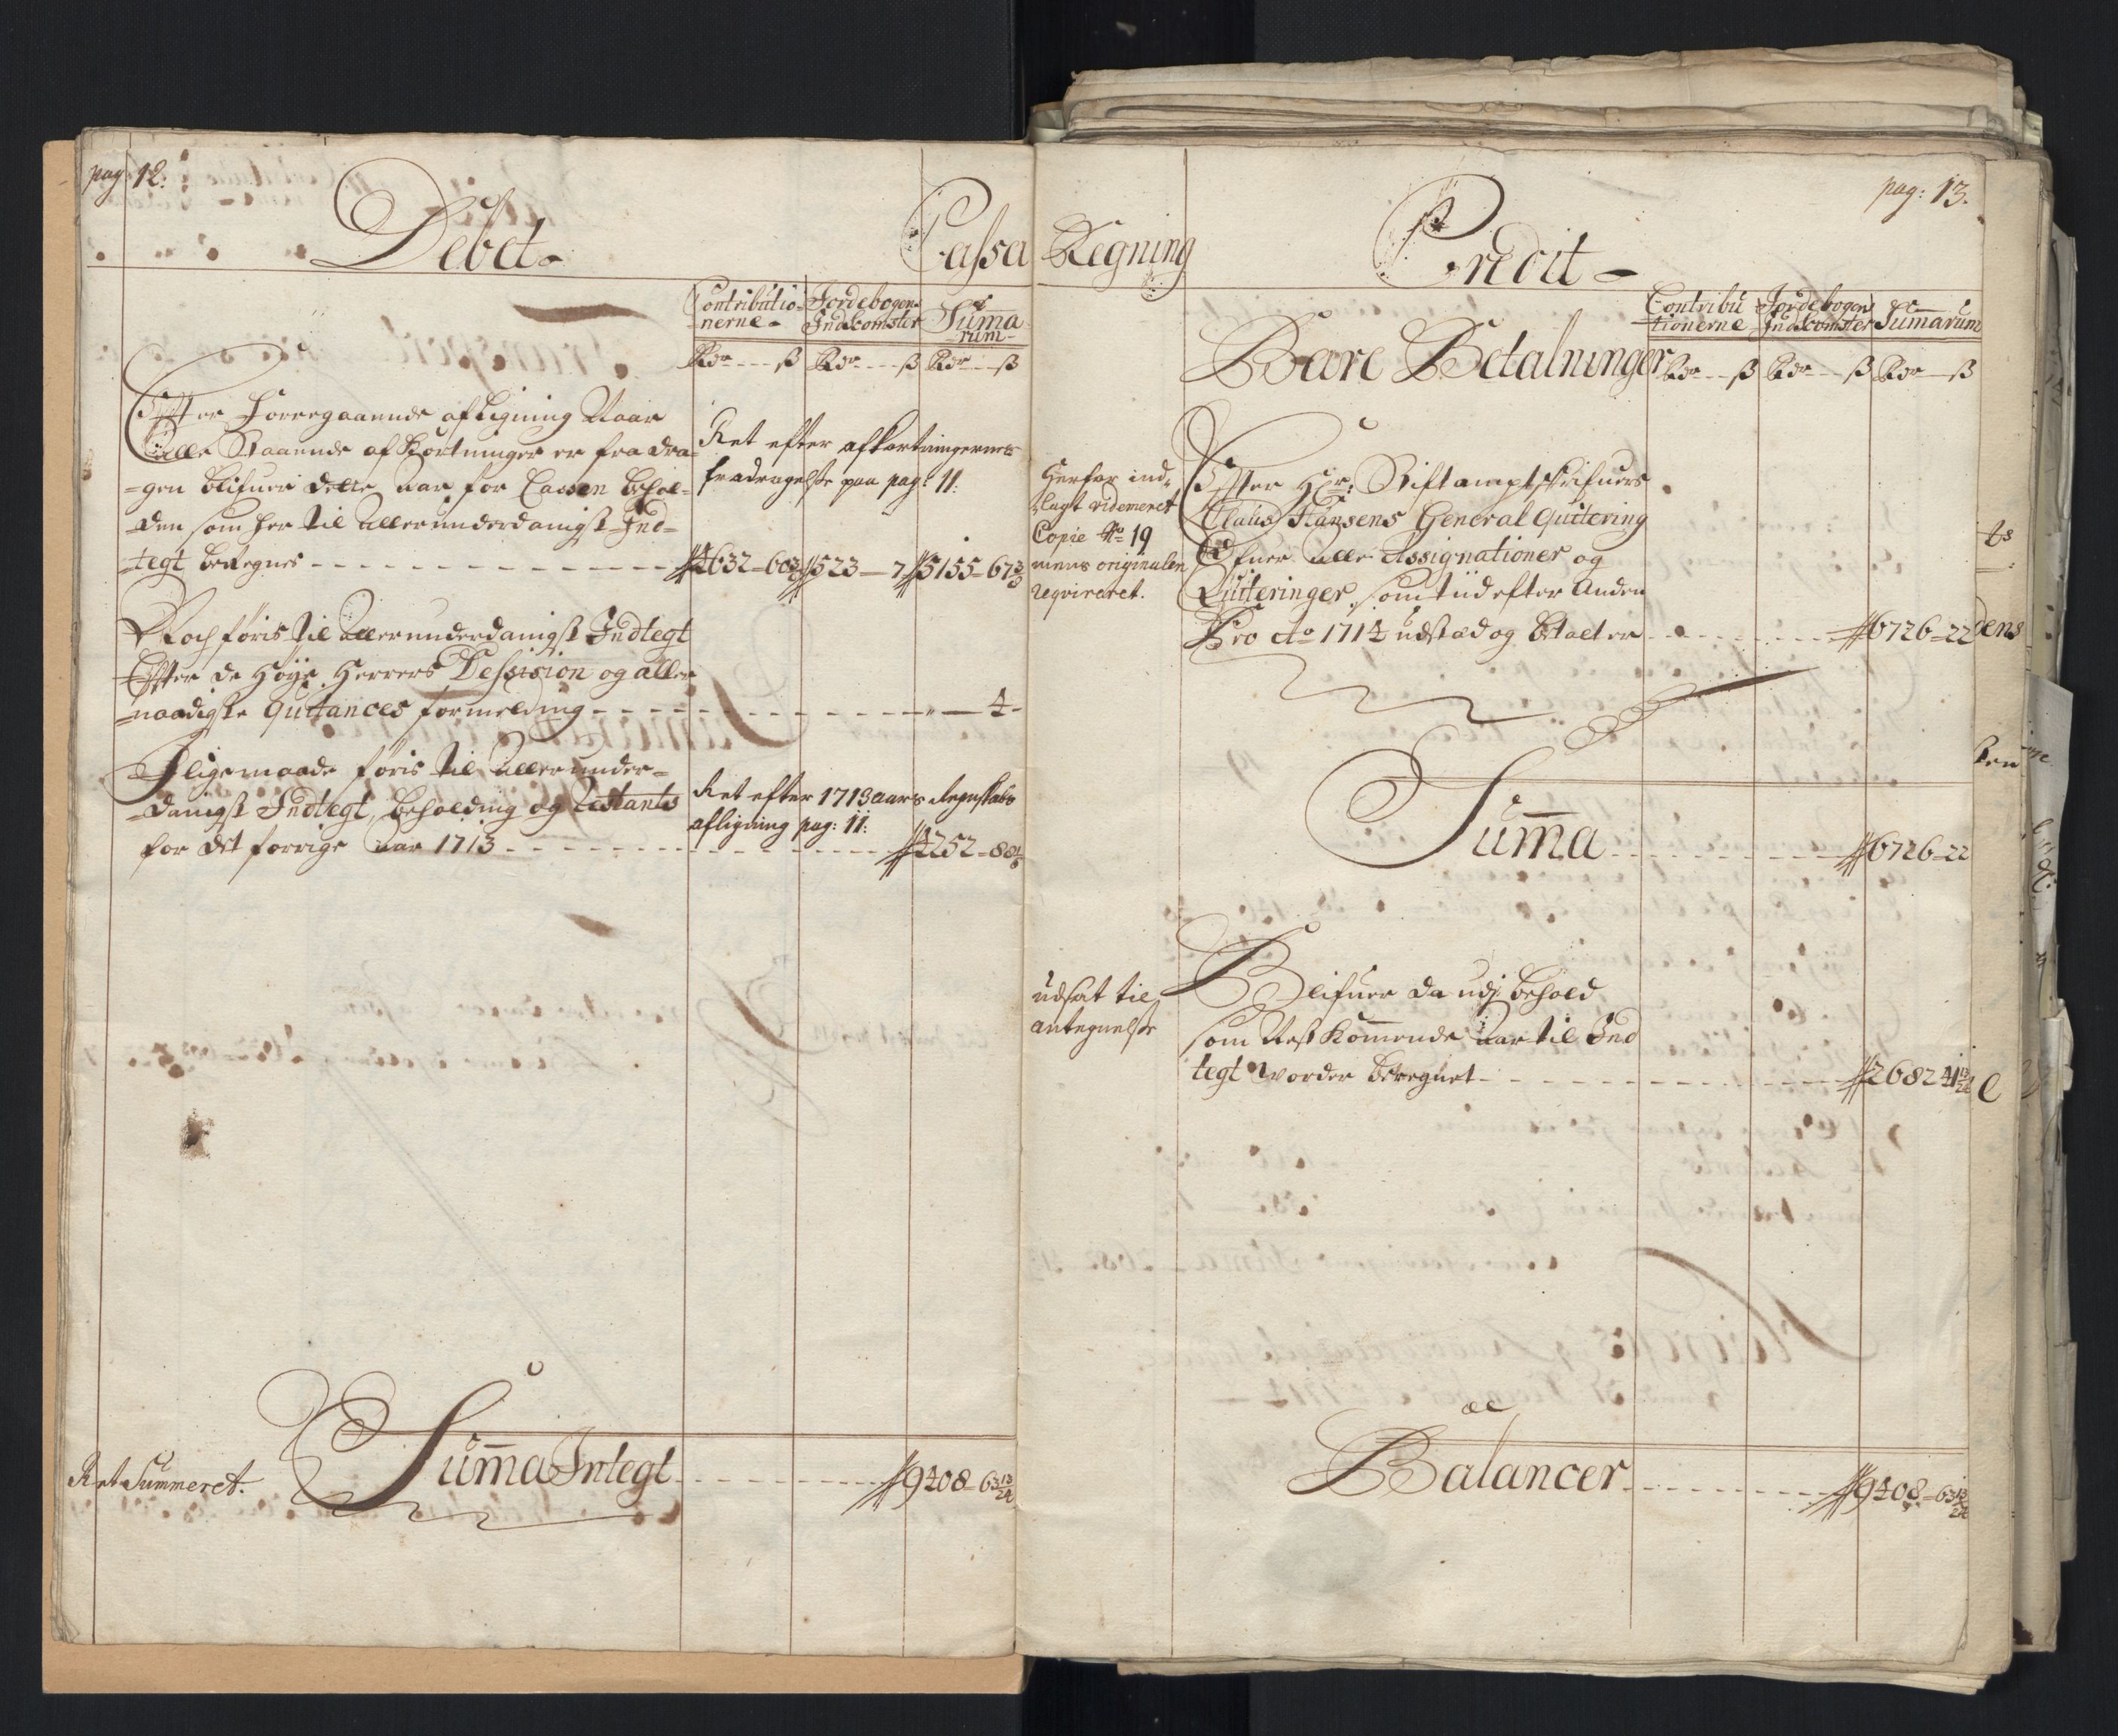 pag 12:
Debet
Cassa
Contributio-
-nerne
Jordebogens
Indkomster
Suma
rum
Rdr ß Rdr ß Rdr ß
Efter foregaaende afligning Naar
alle Staaende afkortninger er fradra-
-gen blifuer dette aar for Cassen behol-
-den som her til allerunderdanigst Ind-
-tegt beregnes
Ret efter afkortningernes
fradragelse paa pag: 11:
4632 - 60 2/3 523 - 7 5155 - 67 2/3
Noch føris til allerunderdanigst Indtegt
Efter de Høye Herrers Dessision og aller
-naadigste Quitances formelding 4 -
I ligemaade føris til allerunder-
-danigst Indtegt, beholding og Restants
for det forrige aar 1713
Ret efter 1713 aars Regnskabs
afligning pag: 11:
4252 - 88
Ret Summeret.
Suma Integt 9408 - 63 13/24
pag: 13.
Regning
Credit
Contribu
tionerne
Jordebogens
Indkomster
Sumarum
Bare Betalninger
Rdr ß Rdr ß Rdr ß
Herfor ind-
-lagt videmeret
Copie No 19
mens originalen
reqvireret.
Efter Hr: Stiftamptskrifuers
Claus Hansens General quitering
Ofuer alle Assignationer og
Quiteringer, som tiid efter Anden
Pro Ao 1714 udstæd og betalt er 6726 - 22
Suma 6726 - 22
udsat til
antegnelse
Blifuer da udj behold
som Rest Kommende aar til Ind
tegt vorder beregnet 2682 41 13/24
Balancer 9408 - 63 13/24